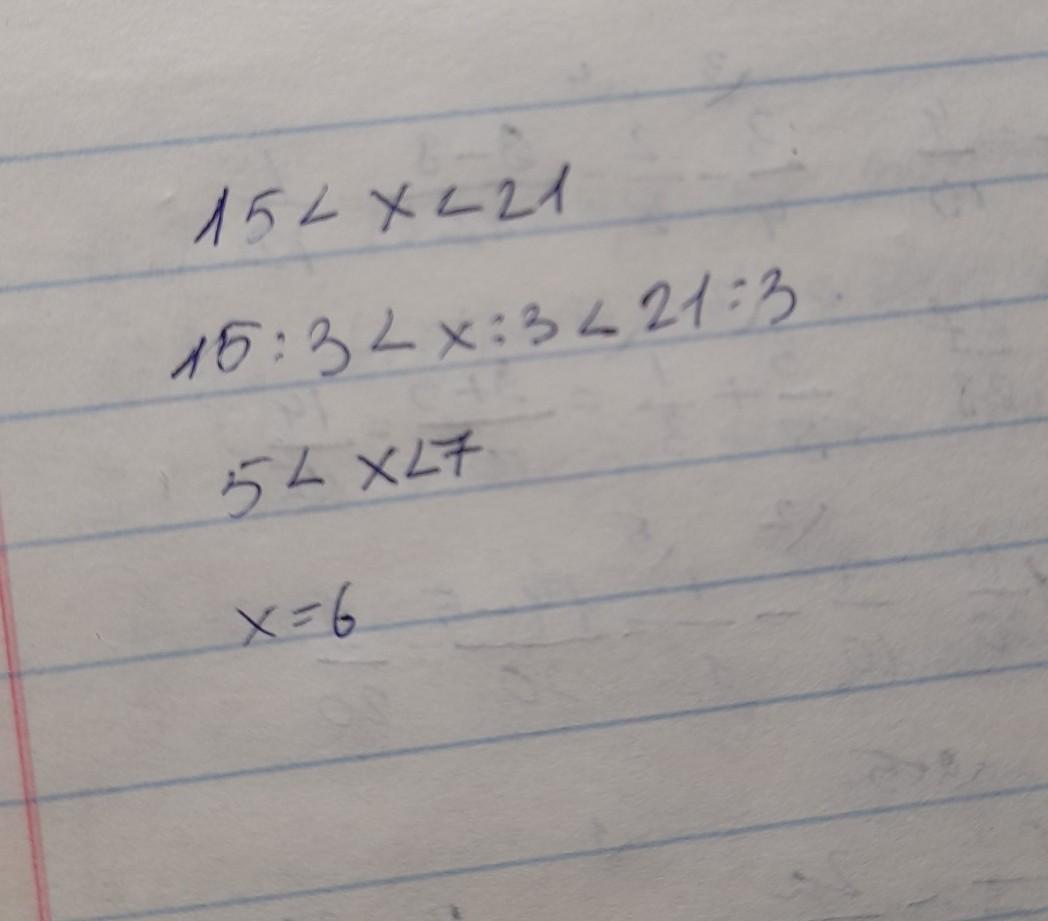 15 < x < 21
15 : 3 < x : 3 < 21 : 3
5 < x < 7
x = 6